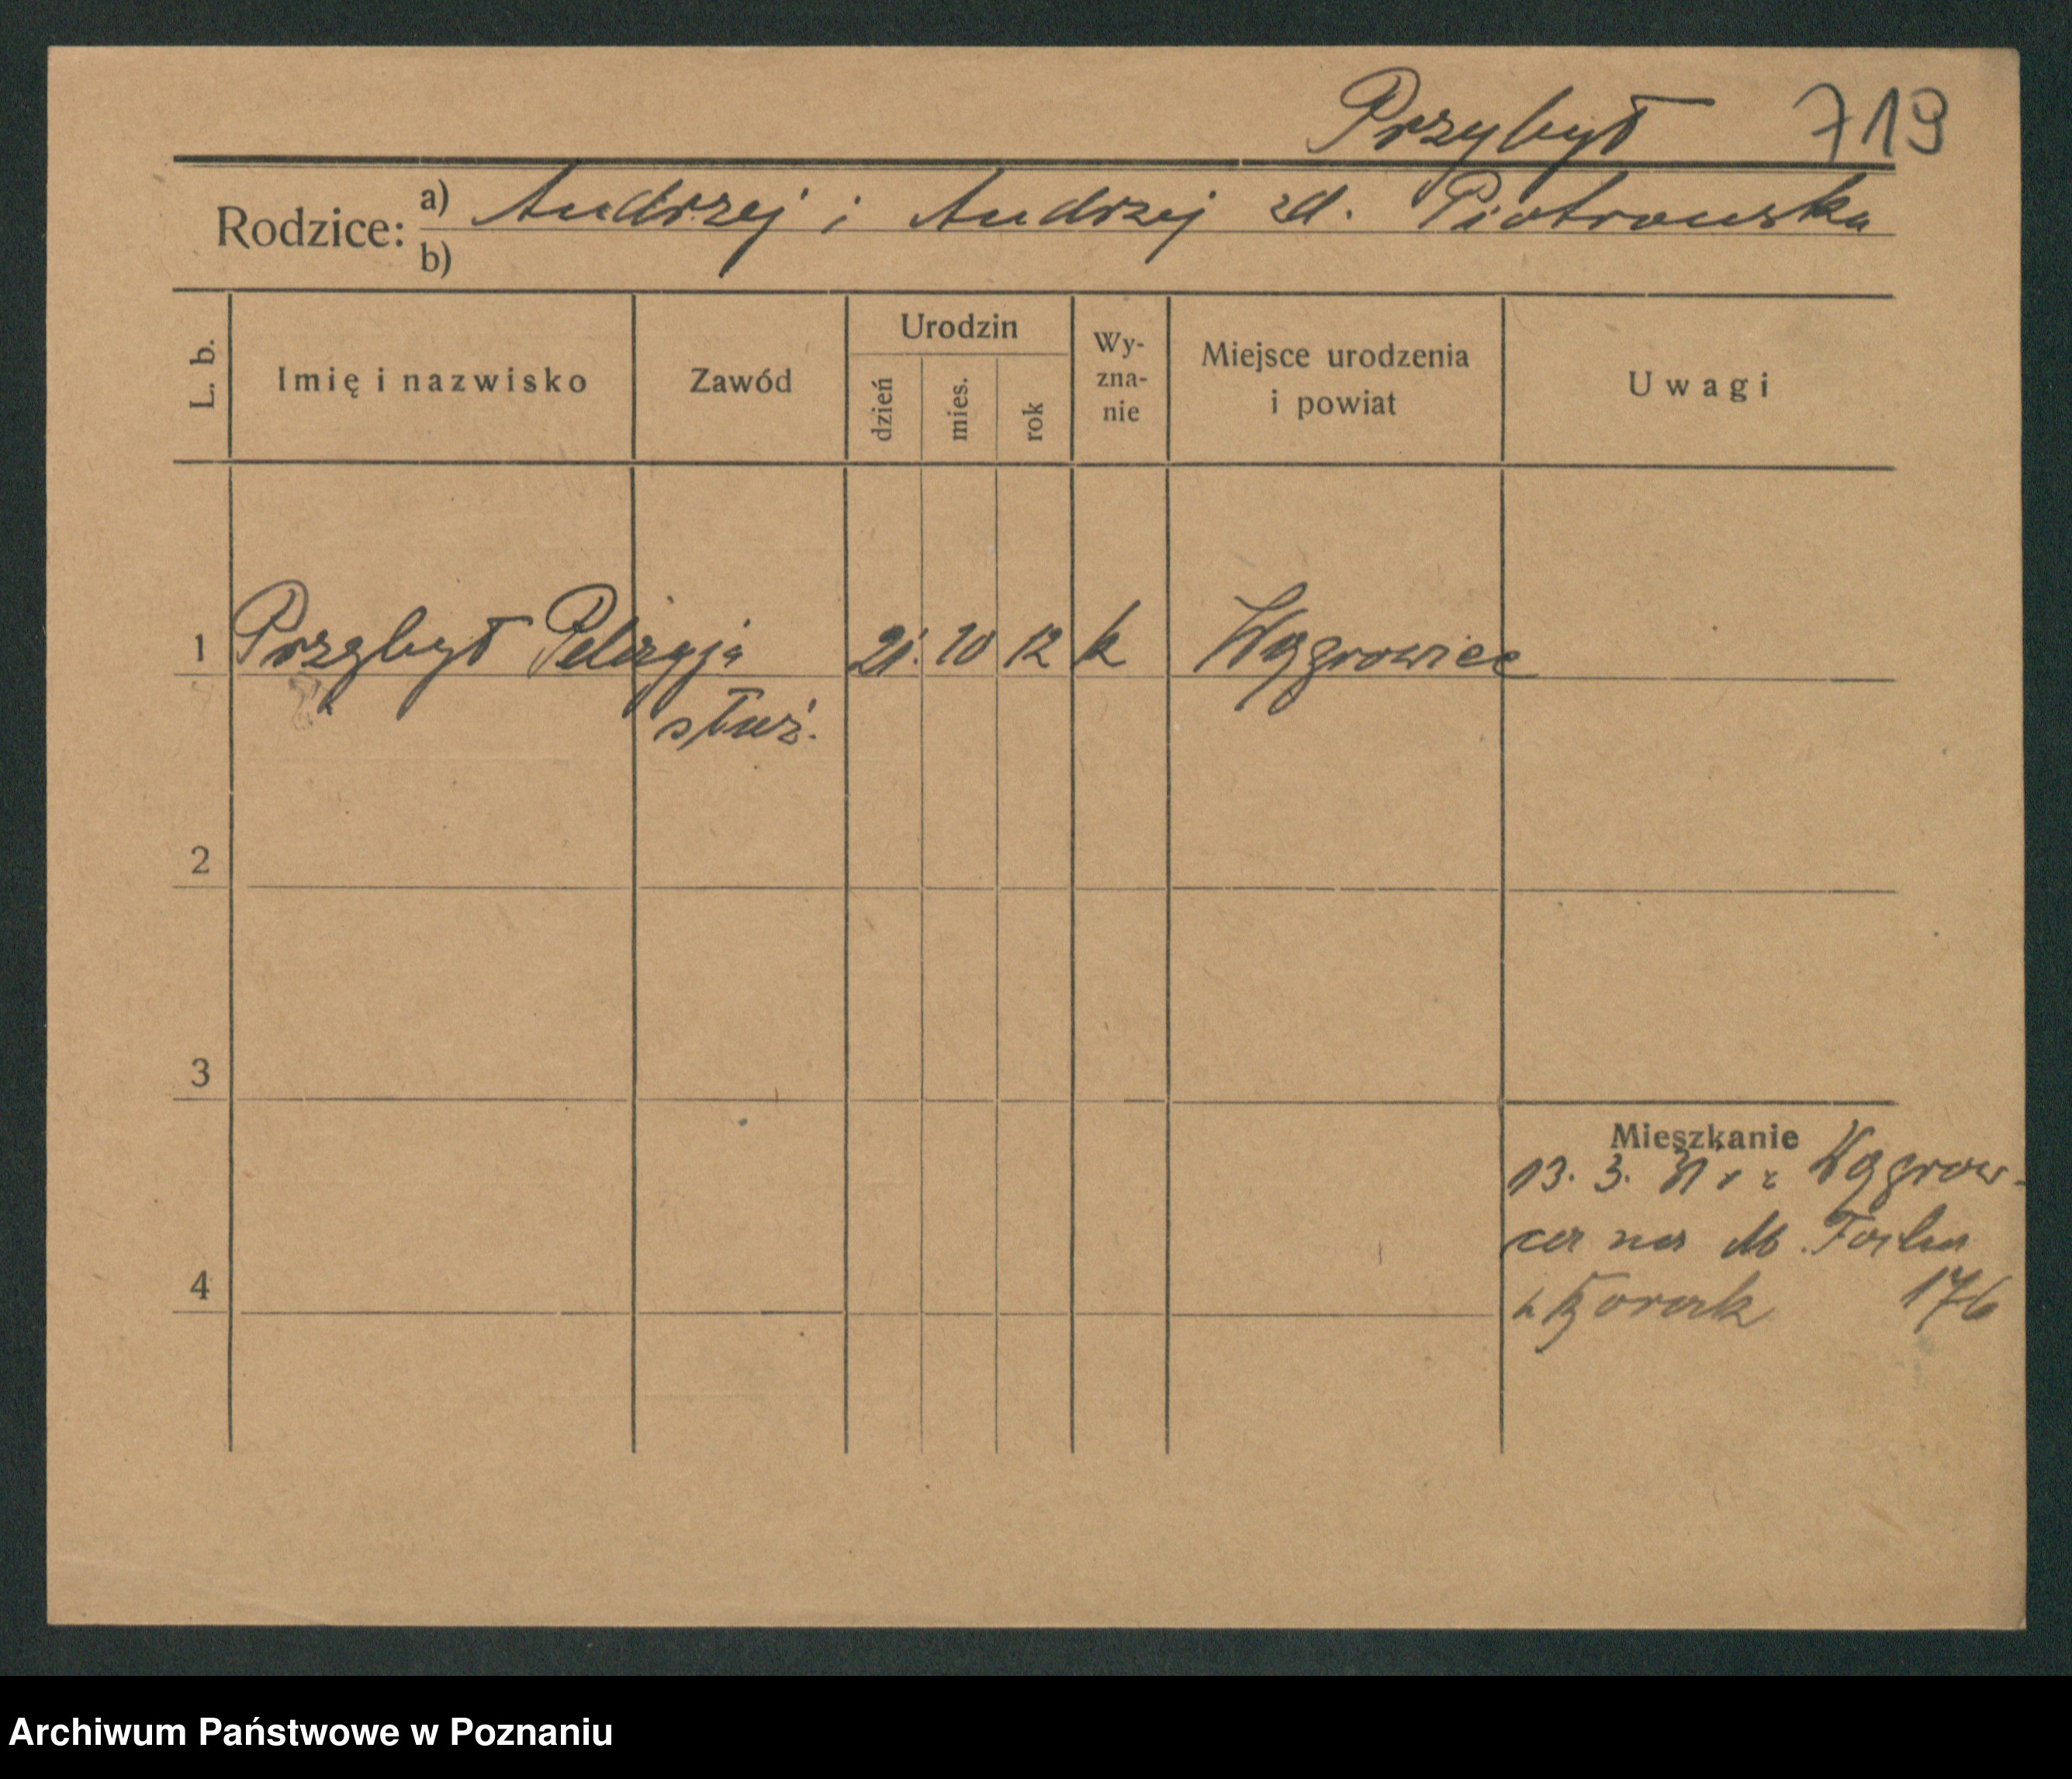 Przybył 719
Rodzice: a) Andrzej i Andrzej zd. Piotrowska
b)
L. b. Imię i nazwisko Zawód Urodzin dzień mies. rok Wy-zna-nie Miejsce urodzenia i powiat Uwagi
1 Przybył Pelagja służ. 21. 10 12 k Wągrowiec
2
3
Mieszkanie
13. 3. z Wągrow-
ca na
4
176
Archiwum Państwowe w Poznaniu